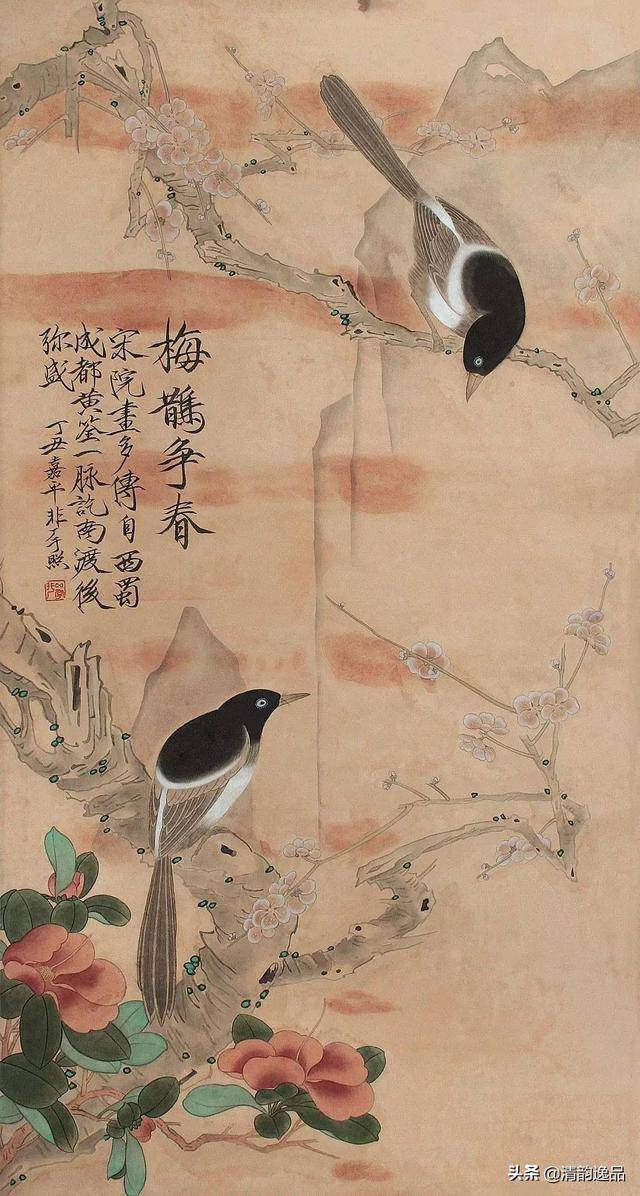 梅鵲争春
宋院畫多傳自西蜀
成都黄筌一脉訖南渡後
弥盛
丁丑嘉平非厂照
头条@清韵逸品